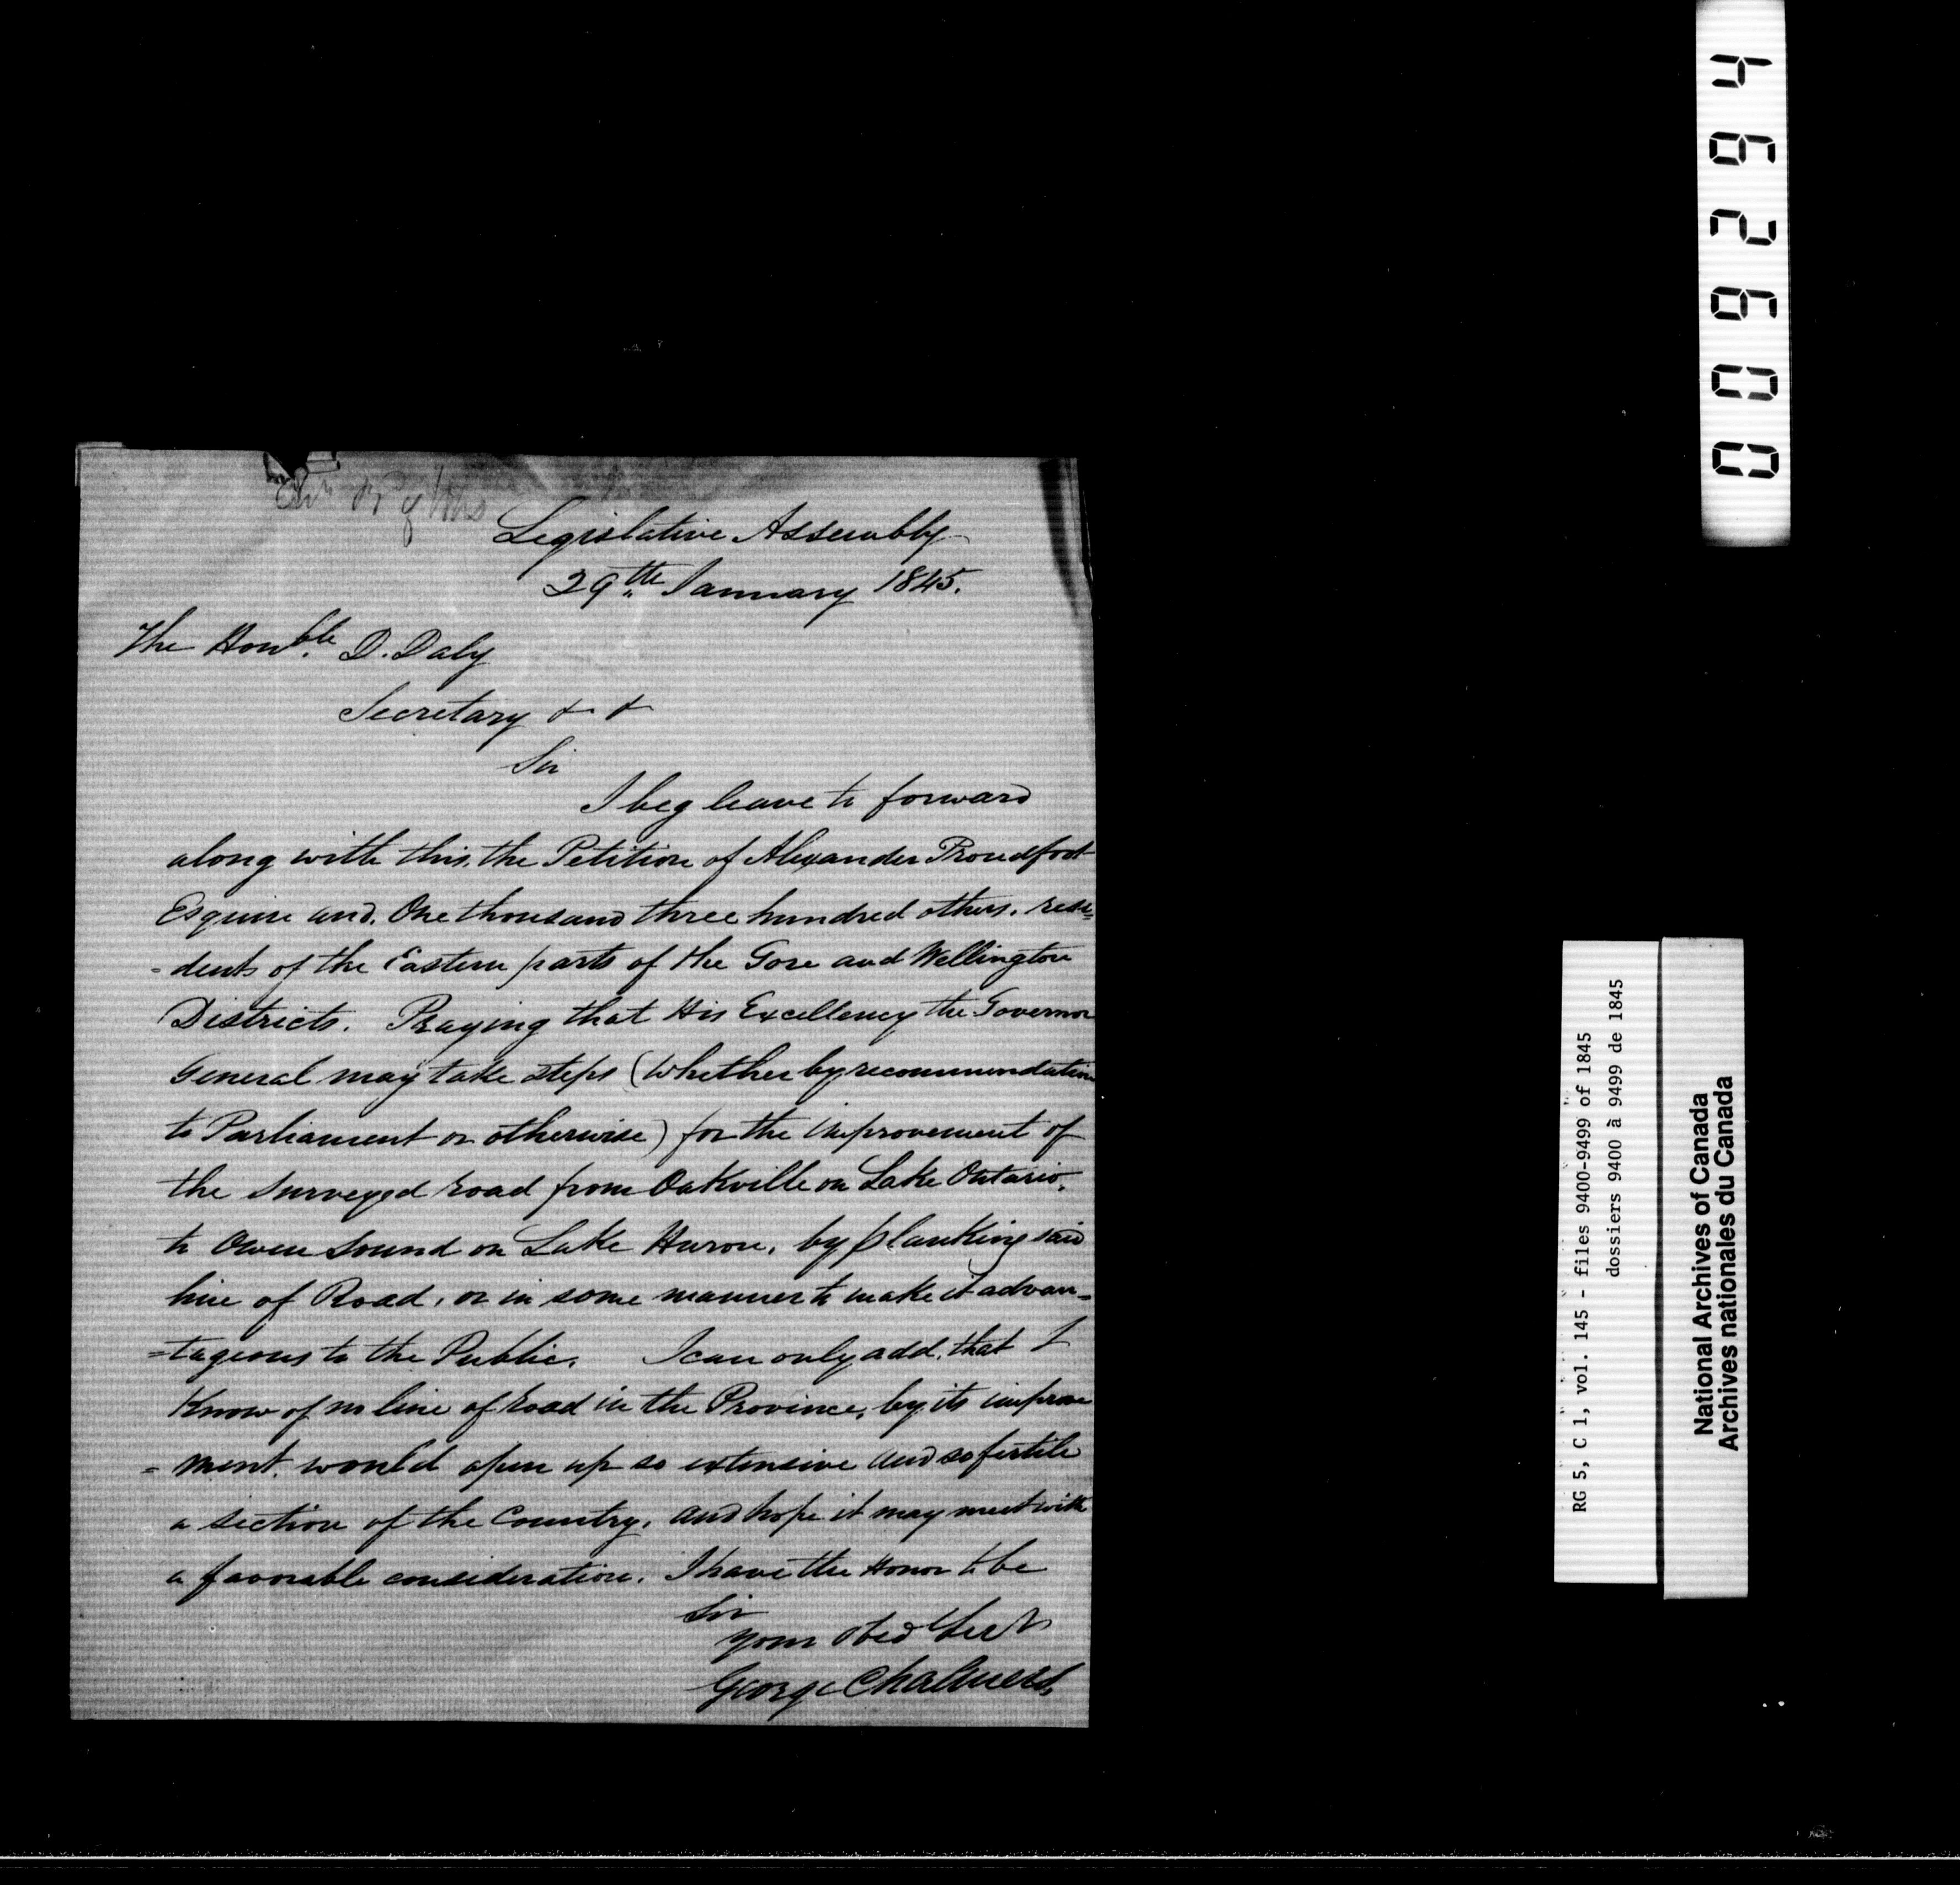 Legislative Assembly
29th January 1845.
The Honble. D. Daly
Secretary & &
Sir
I beg leave to forward
along with this, the Petition of Alexander Proudfoot
Esquire and, One thousand three hundred others, resi=
=dents of the Eastern parts of the Gore and Wellington
Districts. Praying that His Excellency the Governor
General may take steps (whether by recommendation
to Parliament or otherwise) for the improvement of
the surveyed road from Oakville on Lake Ontario,
to Owen Sound on Lake Huron, by planking said
line of Road, or in some manner to make it advan=
=tageous to the Public. I can only add, that I
Know of no line of road in the Province, by its improve
=ment, would open up so extensive and so fertile
a section of the Country, and hope it may meet with
a favorable consideration. I have the Honor to be
Sir
your obed Sert
George Chalmers
009264
RG 5, C 1, vol. 145 - files 9400-9499 of 1845
dossiers 9400 à 9499 de 1845
National Archives of Canada
Archives nationales du Canada